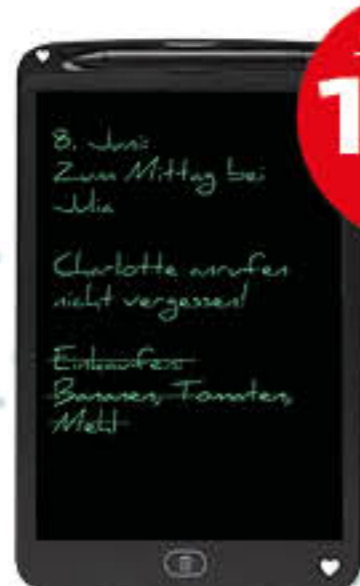 1
8. Juni:
Zum Mittag bei
Julia
Charlotte anrufen
nicht vergessen!
Einkaufen:
Bananen, Tomaten,
Mehl